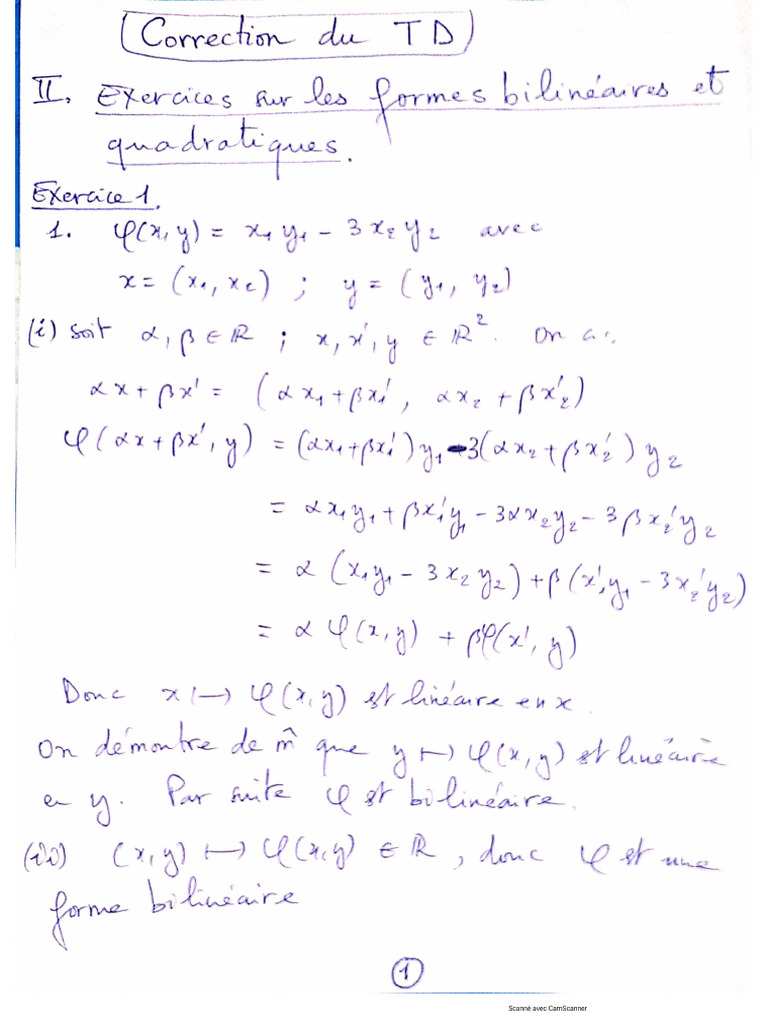 Correction du TD
II. Exercices sur les formes bilinéaires et
quadratiques.
Exercice 1.
1. φ(x, y) = x₁y₁ - 3x₂y₂ avec
x = (x₁, x₂) ; y = (y₁, y₂)
(i) soit α, β ∈ ℝ ; x, x', y ∈ ℝ². On a :
αx + βx' = (αx₁ + βx₁', αx₂ + βx₂')
φ(αx + βx', y) = (αx₁ + βx₁')y₁ - 3(αx₂ + βx₂')y₂
= αx₁y₁ + βx₁'y₁ - 3αx₂y₂ - 3βx₂'y₂
= α(x₁y₁ - 3x₂y₂) + β(x₁'y₁ - 3x₂'y₂)
= αφ(x, y) + βφ(x', y)
Donc x ↦ φ(x, y) est linéaire en x.
On démontre de m̂ que y ↦ φ(x, y) est linéaire
en y. Par suite φ est bilinéaire.
(ii) (x, y) ↦ φ(x, y) ∈ ℝ, donc φ est une
forme bilinéaire
1
Scanné avec CamScanner